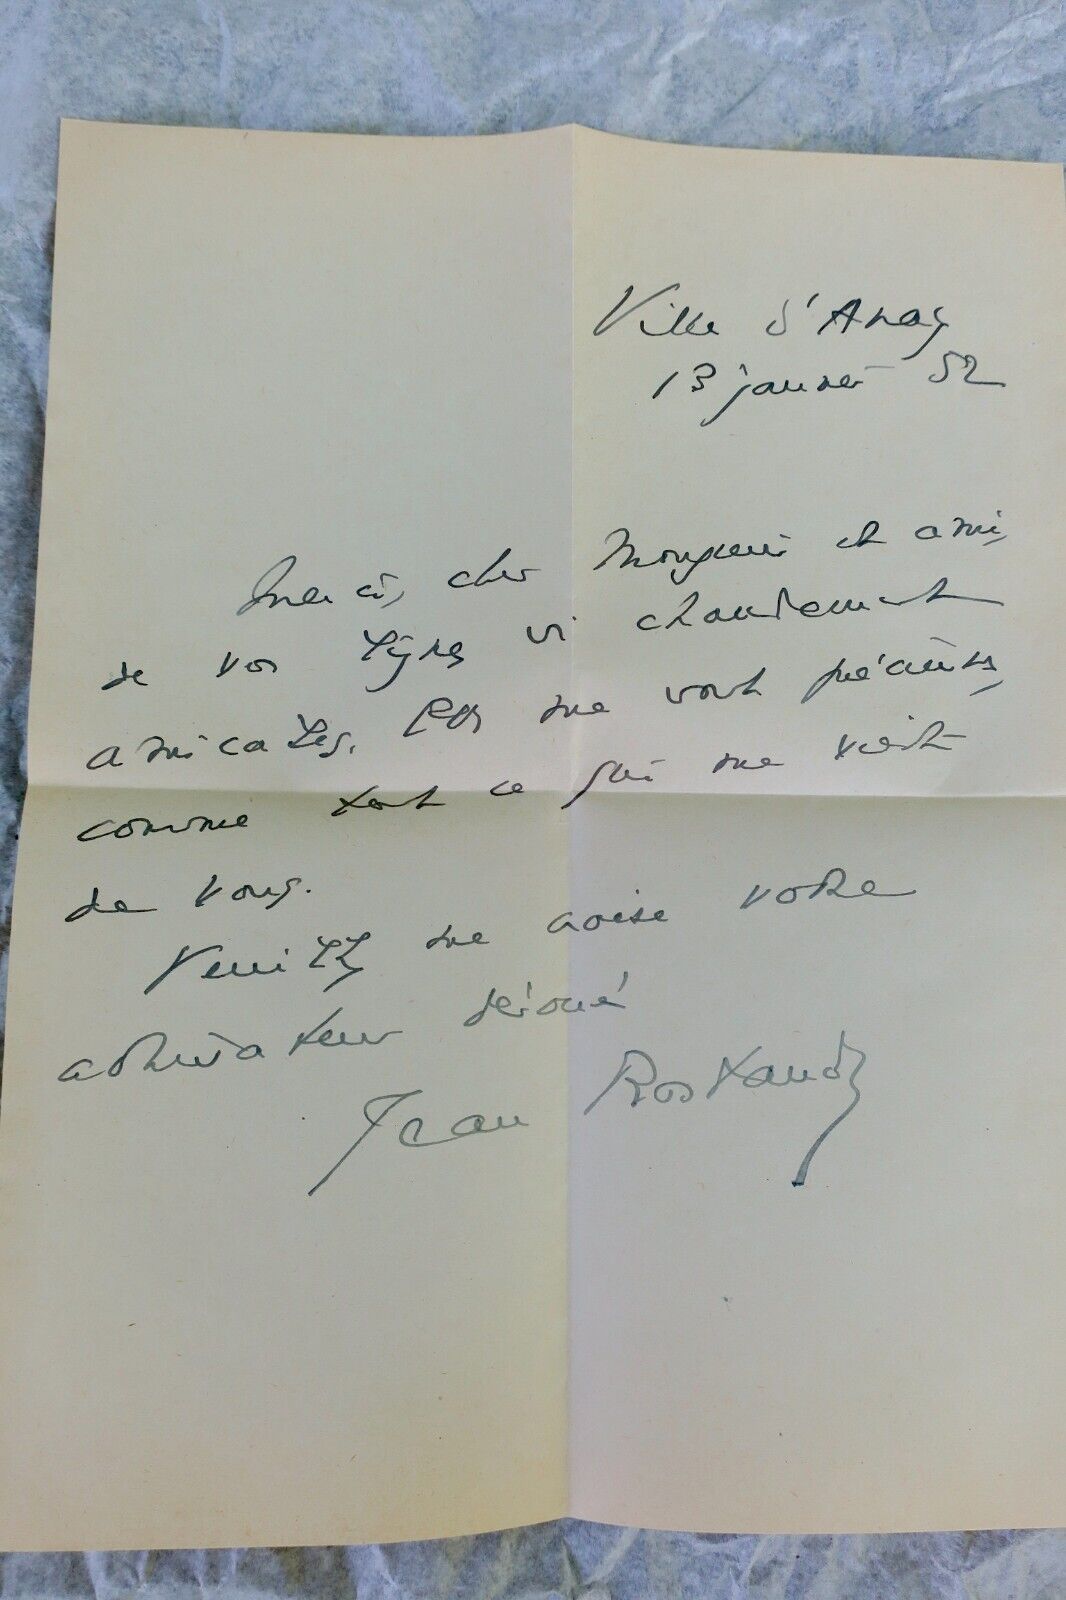 Ville d'Avray
13 janvier 52
Merci, cher Monsieur et ami,
de vos lignes si chaudement
amicales. Elles me sont précieuses,
comme tout ce qui me vient
de vous.
Veuillez me croire votre
admirateur dévoué
Jean Rostand